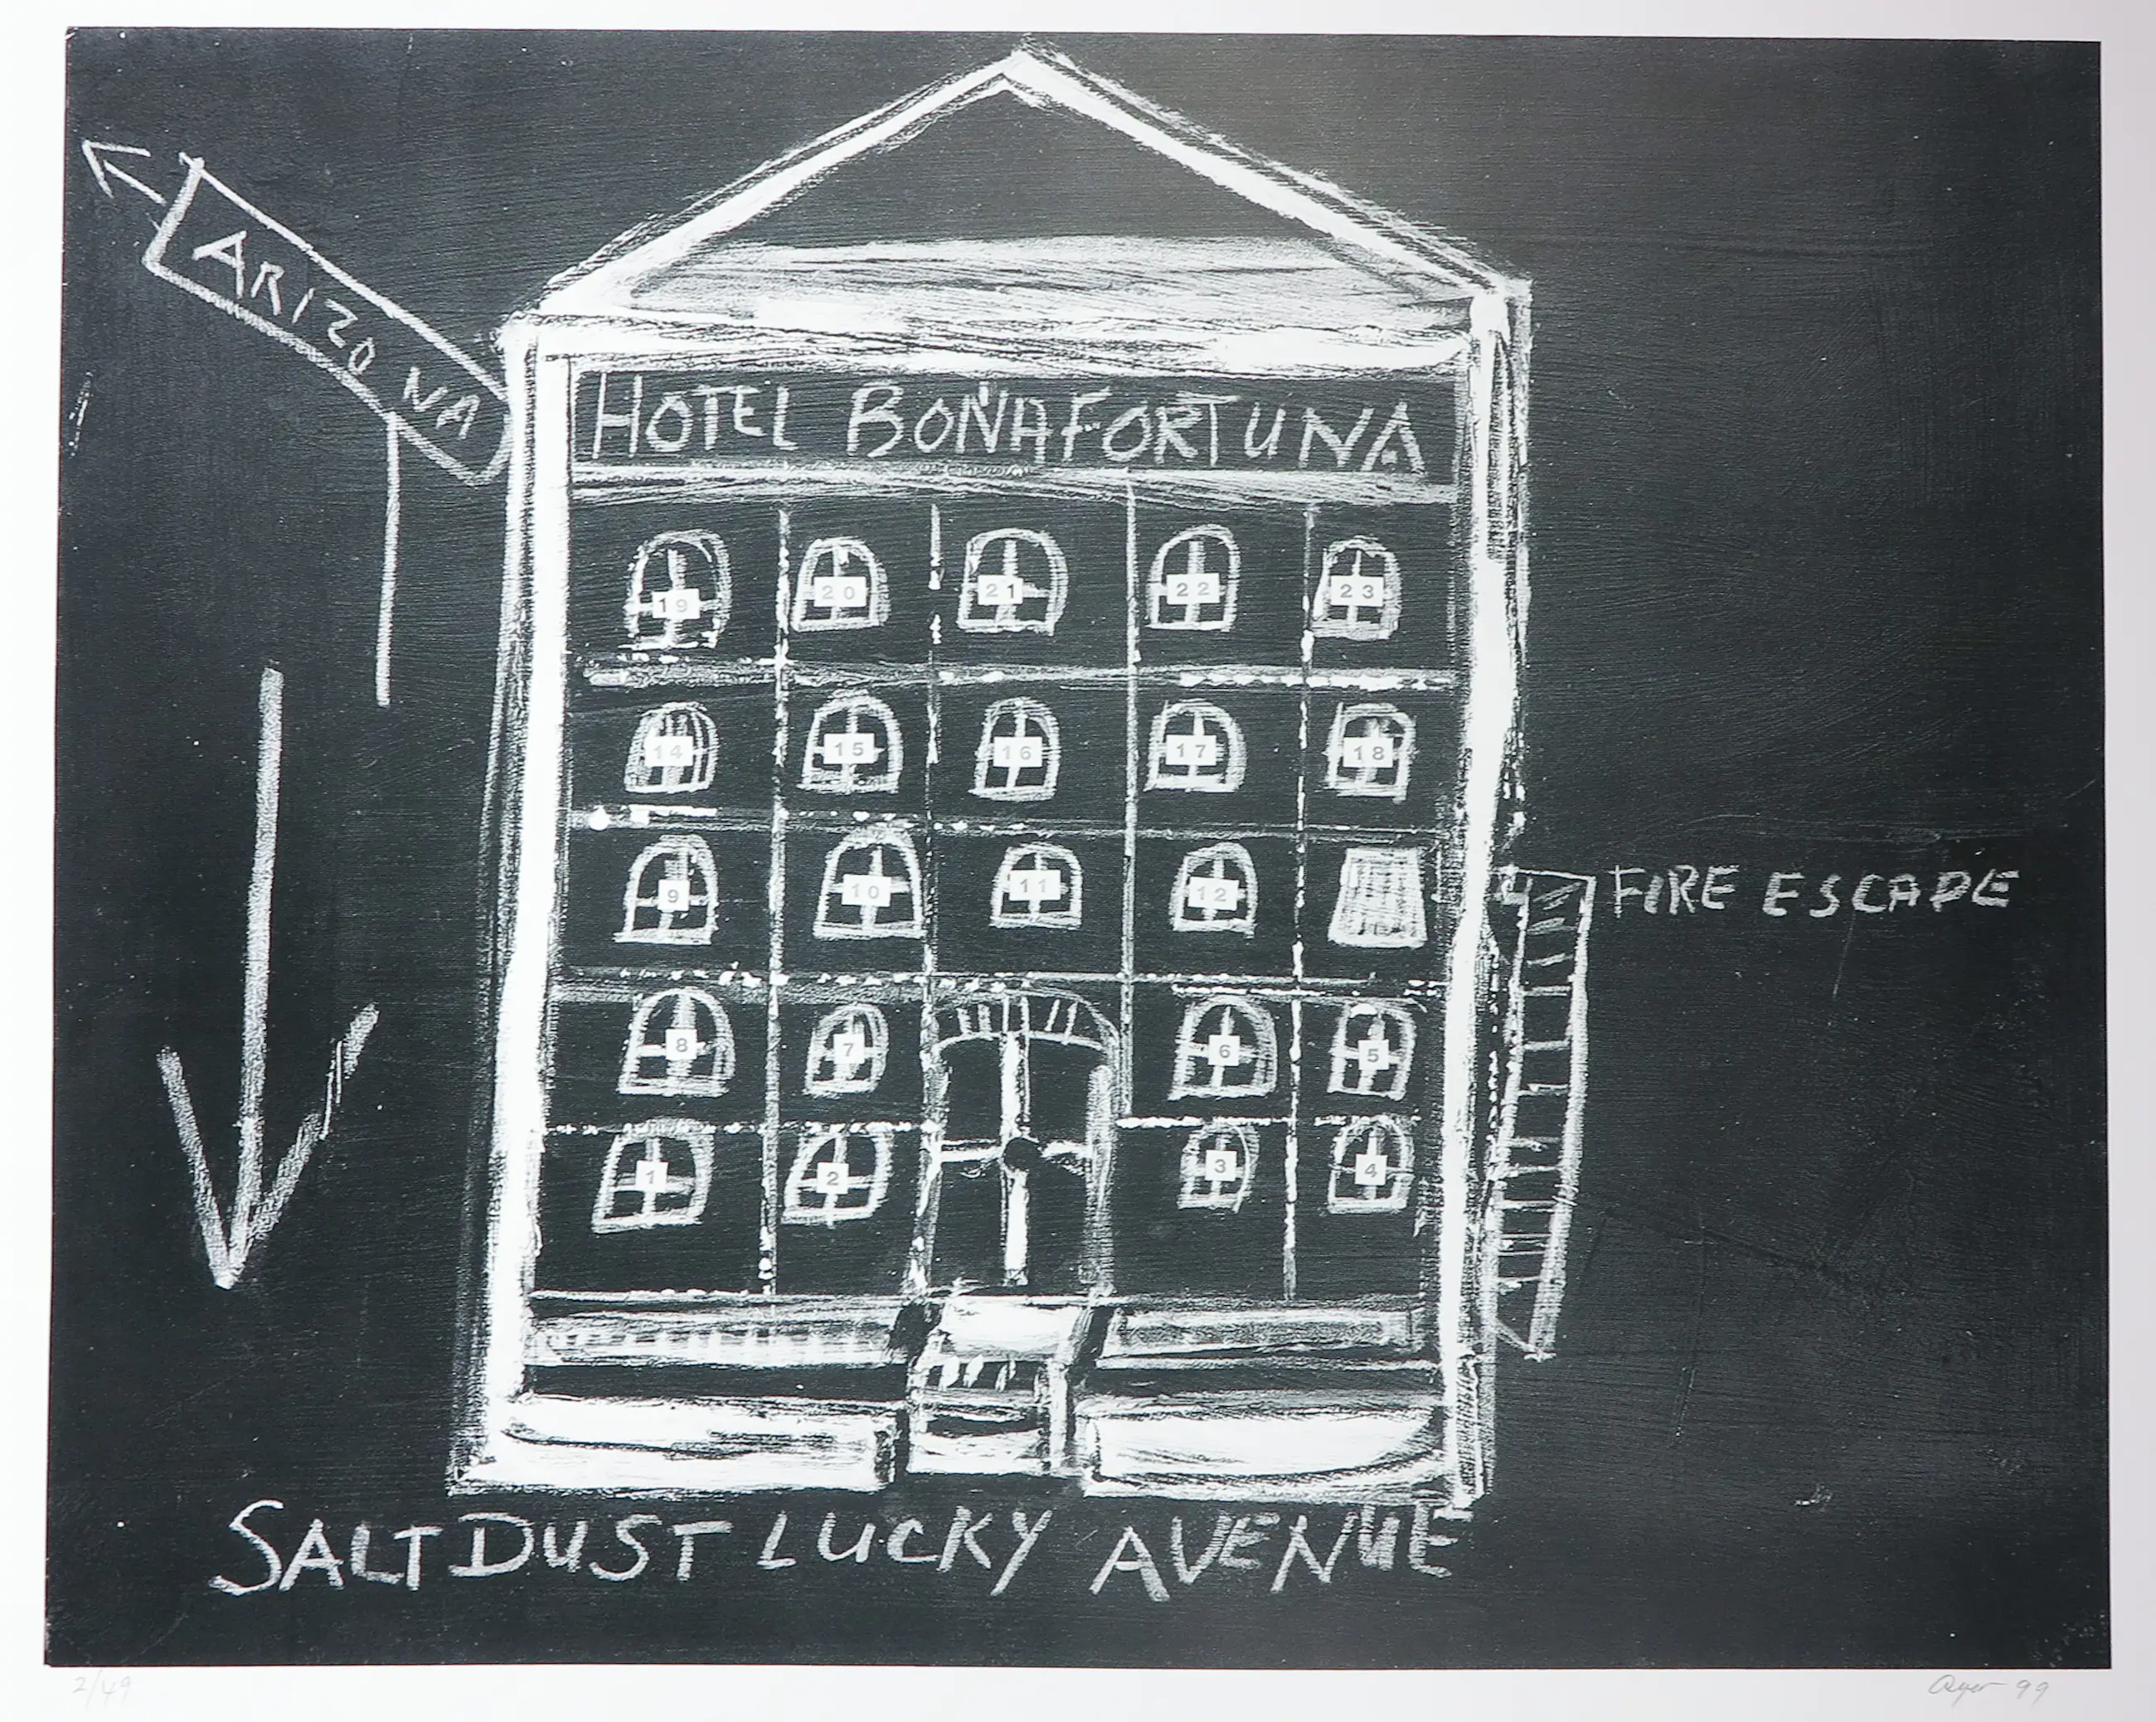 ARIZONA
HOTEL BOÑAFORTUNA
19 20 21 22 23
14 15 16 17 18
9 10 11 12
FIRE ESCAPE
8 7 6 5
1 2 3 4
SALTDUST LUCKY AVENUE
2/49
99